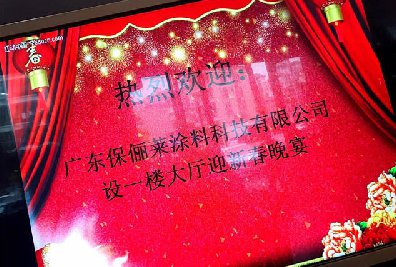 春
热烈欢迎：
广东保俪莱涂料科技有限公司
设一楼大厅迎新春晚宴